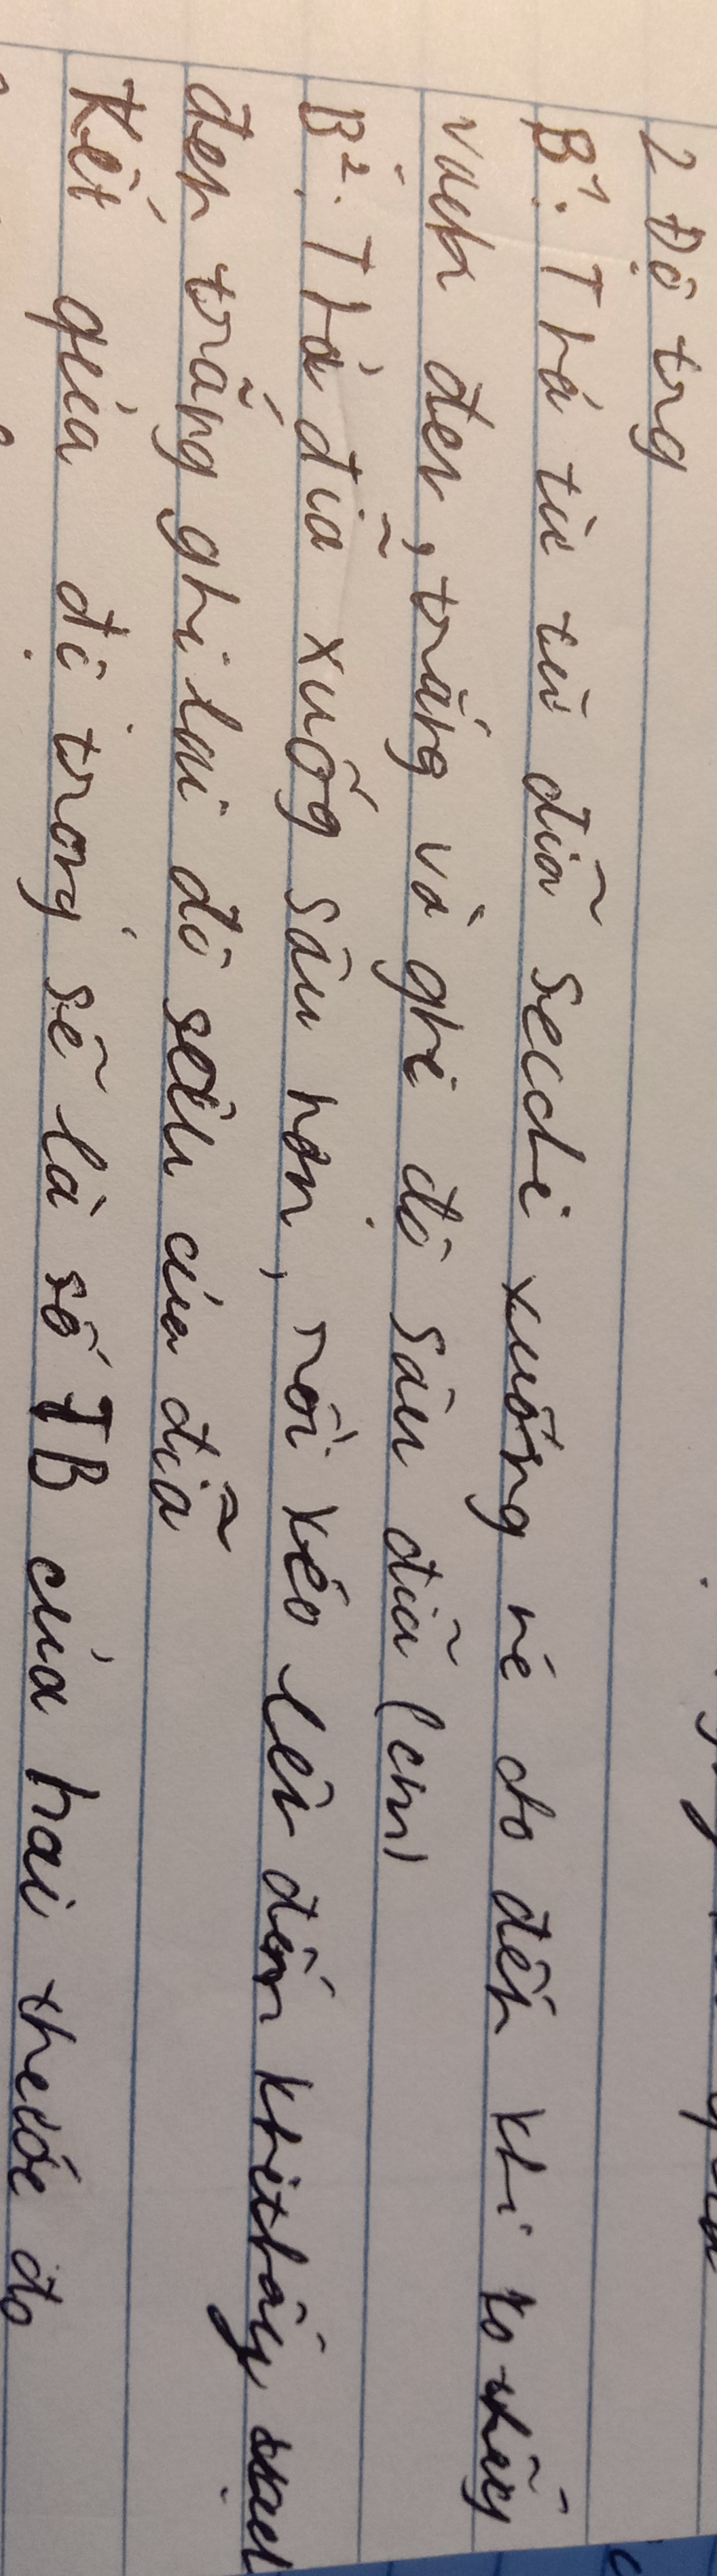 2 Độ trg
B1: Thả từ từ đĩa secchi xuống nc do đến khi ko thấy
vạch đen, trắng và ghi độ sâu đĩa (cm)
B2: Thả đĩa xuốg sâu hơn, rồi kéo lên đến khi thấy vạch
đen trắng ghi lại độ sâu của đĩa
Kết quả độ trong sẽ là số TB của hai thước đo